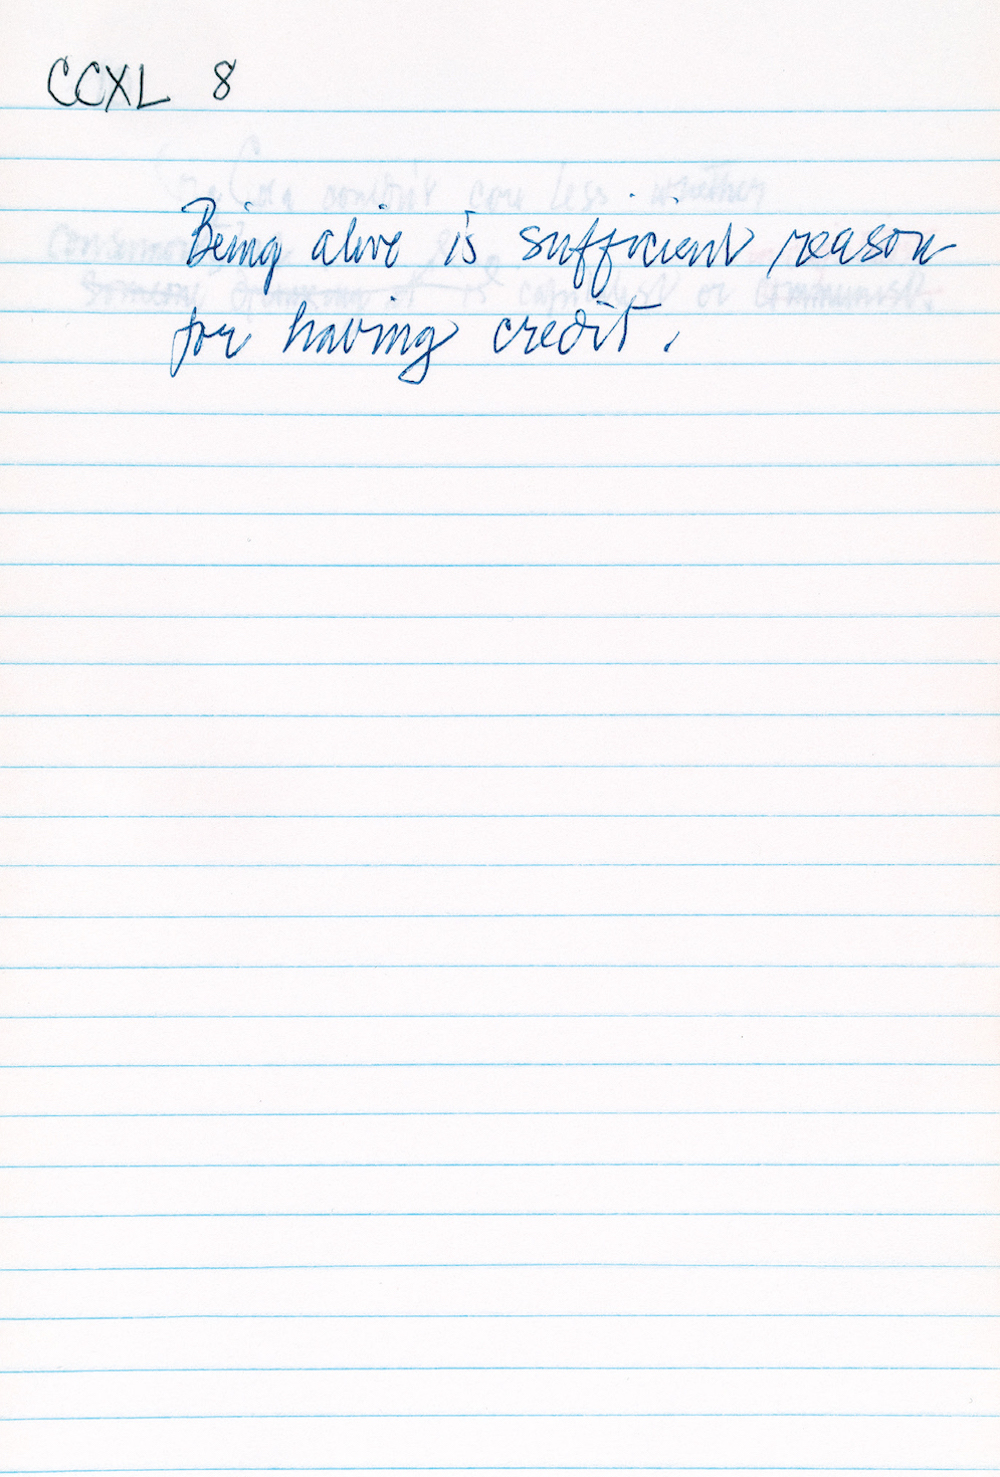 CCXL 8
Being alive is sufficient reason
for having credit.